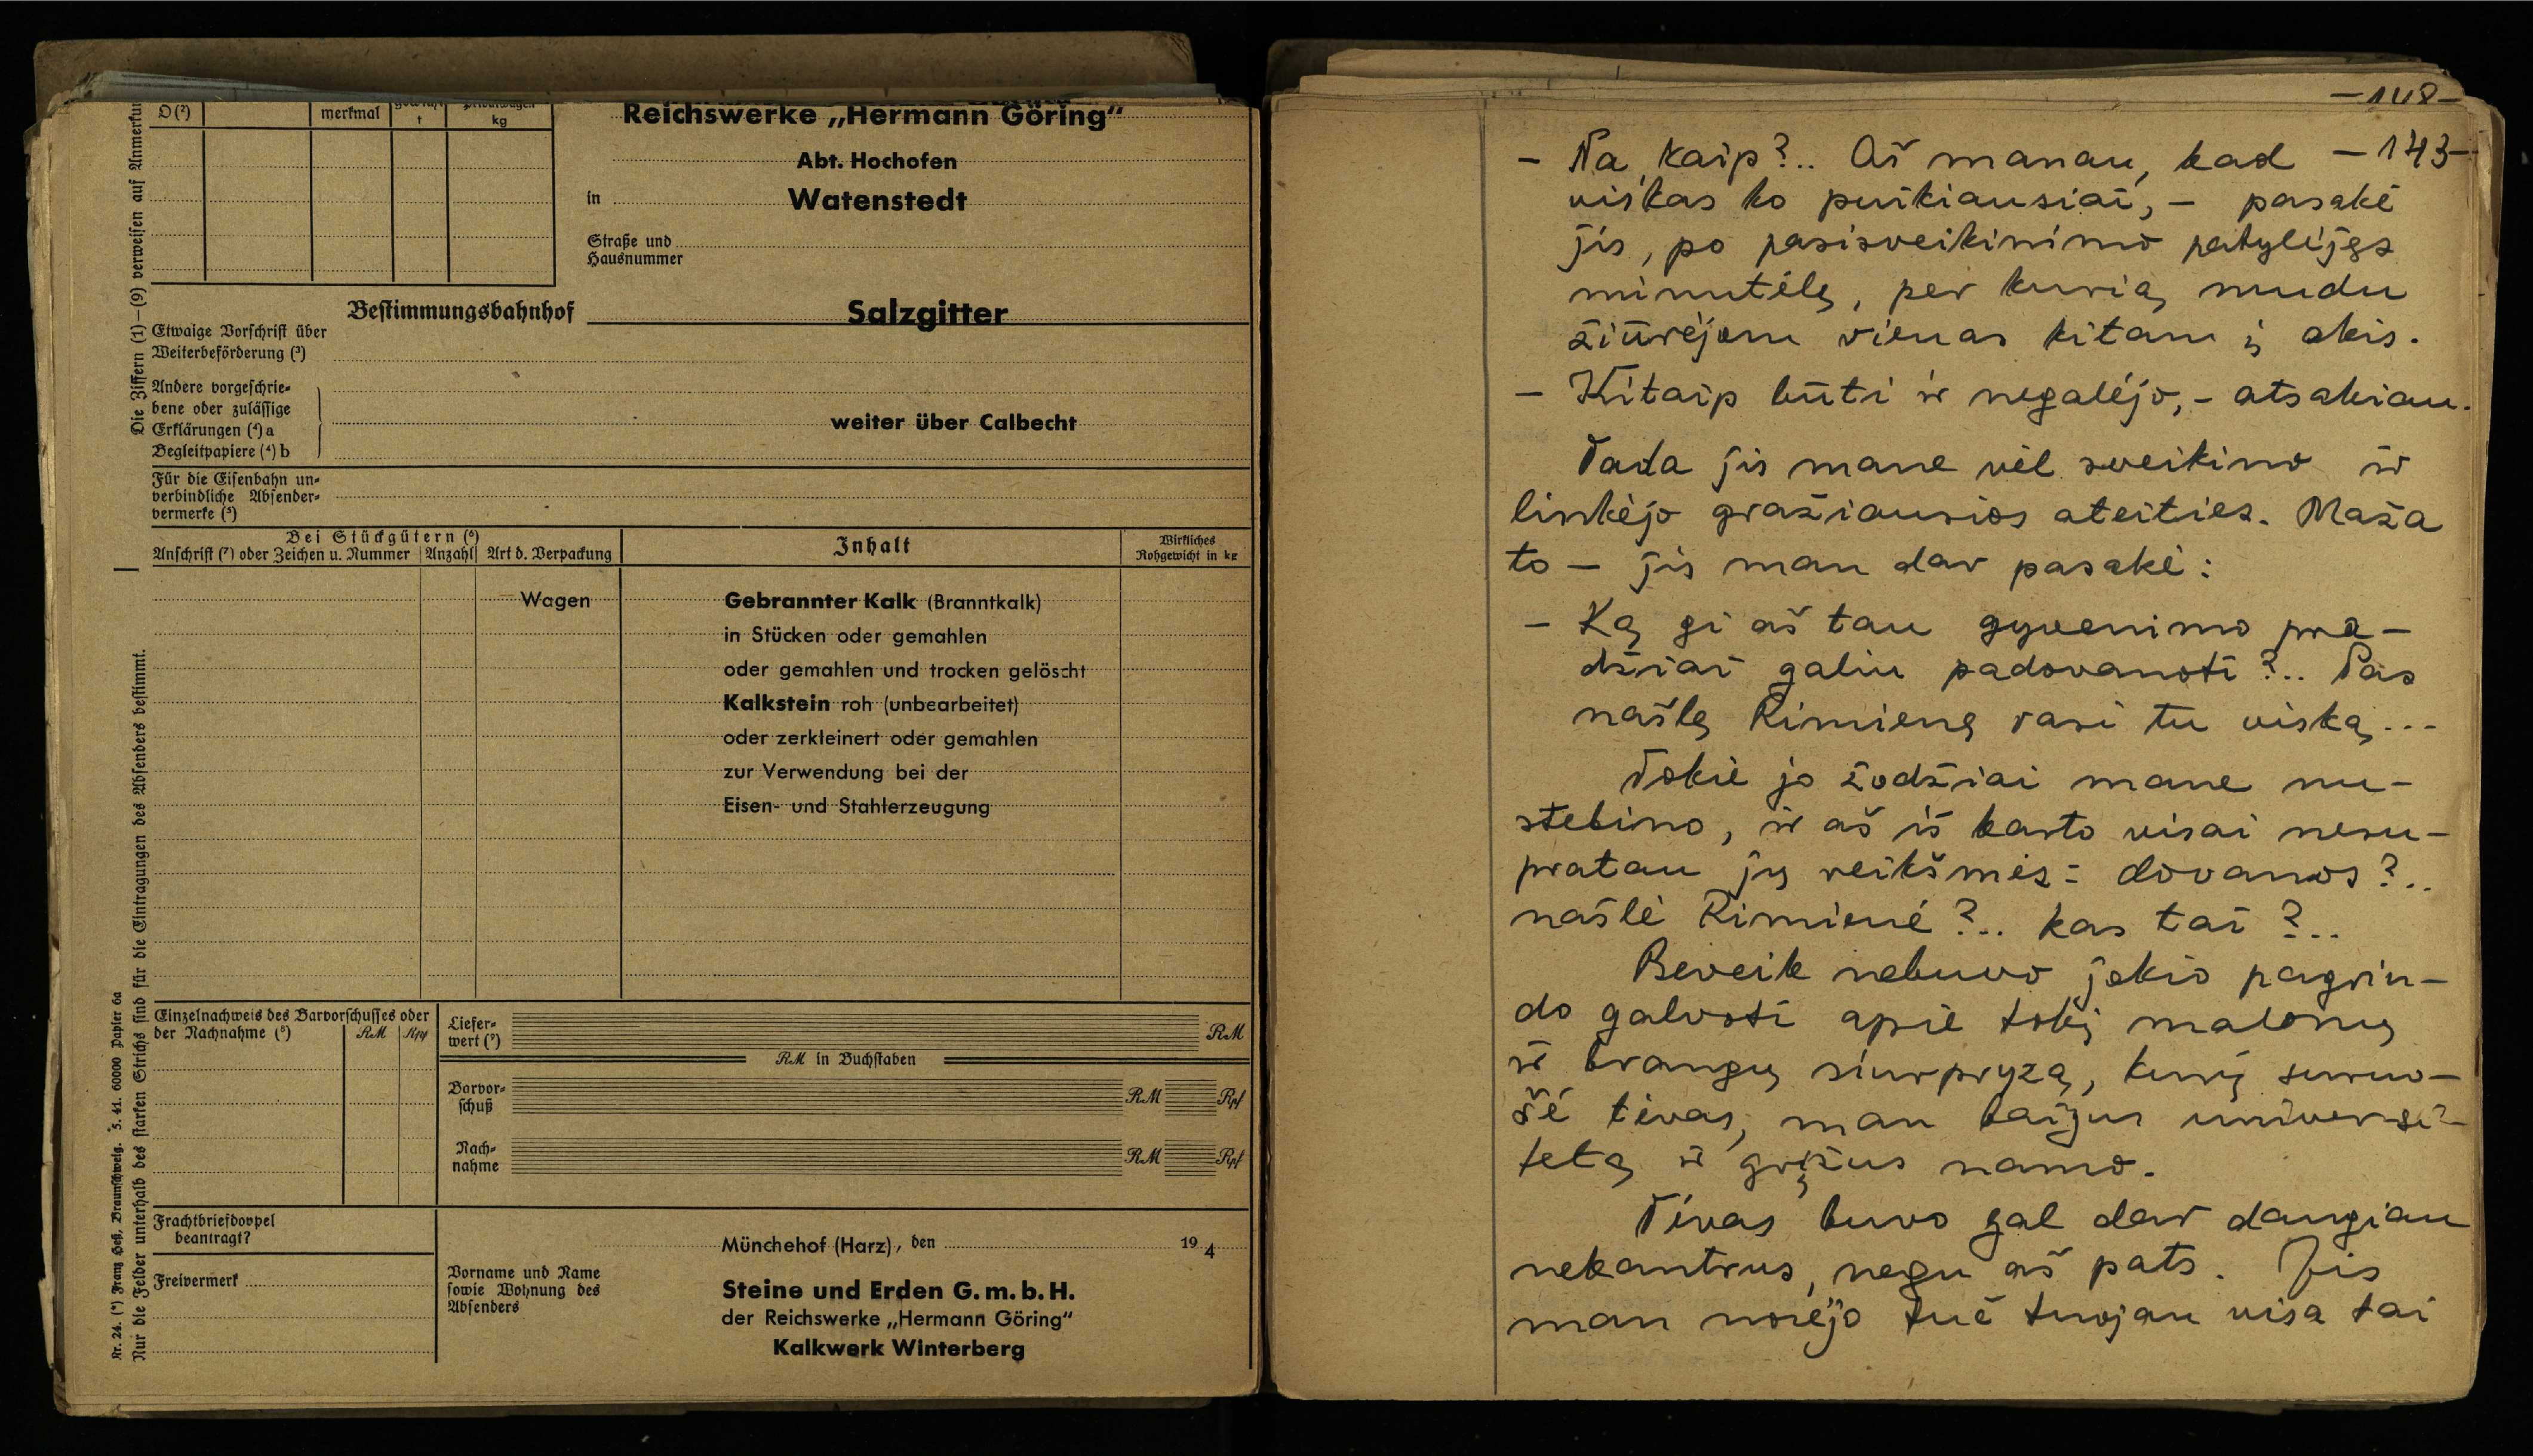 D(²)
merkmal
t
kg
Reichswerke „Hermann Göring“
Abt. Hochofen
in Watenstedt
Straße und
Hausnummer
Bestimmungsbahnhof Salzgitter
Etwaige Vorschrift über
Weiterbeförderung (³)
Andere vorgeschrie-
bene oder zulässige
Erklärungen (⁴) a
Begleitpapiere (⁴) b
weiter über Calbecht
Für die Eisenbahn un-
verbindliche Absender-
vermerke (⁵)
Bei Stückgütern (⁶)
Anschrift (⁷) oder Zeichen u. Nummer Anzahl Art d. Verpackung
Inhalt
Wirkliches
Rohgewicht in kg
Wagen Gebrannter Kalk (Branntkalk)
in Stücken oder gemahlen
oder gemahlen und trocken gelöscht
Kalkstein roh (unbearbeitet)
oder zerkleinert oder gemahlen
zur Verwendung bei der
Eisen- und Stahlerzeugung
Einzelnachweis des Barvorschusses oder
der Nachnahme (⁸) RM Rpf
Liefer-
wert (⁹) RM
RM in Buchstaben
Barvor-
schuß RM Rpf
Nach-
nahme RM Rpf
Frachtbriefdoppel
beantragt?
Freivermerk
Münchehof (Harz), den 194
Vorname und Name
sowie Wohnung des
Absenders
Steine und Erden G. m. b. H.
der Reichswerke „Hermann Göring“
Kalkwerk Winterberg
Die Ziffern (1)–(9) verweisen auf
Nur die Felder unterhalb des starken Strichs sind für die Eintragungen des Absenders bestimmt.
Nr. 24. (*) Franz Heß, Braunschweig. 5. 41. 60000 Papier 6a
–148–
– Na, kaip?.. Aš manau, kad –143–
viskas ko puikiausiai, – pasakė
jis, po pasisveikinimo patylėjęs
minutėlę, per kurią mudu
žiūrėjom vienas kitam į akis.
– Kitaip būti ir negalėjo, – atsakiau.
Tada jis mane vėl sveikino ir
linkėjo gražiausios ateities. Maža
to – jis man dar pasakė:
– Ką gi aš tau gyvenimo pra-
džiai galiu padovanoti?.. Pas
našlę Rimienę rasi tu viską...
Tokie jo žodžiai mane nu-
stebino, ir aš iš karto visai nesu-
pratau jų reikšmės: dovanos?..
našlė Rimienė?.. kas tai?..
Beveik nebuvo jokio pagrin-
do galvoti apie tokį malonų
ir brangų siurpryzą, kurį suruo-
šė tėvas, man baigus universi-
tetą ir grįžus namo.
Tėvas buvo gal dar daugiau
nekantrus, negu aš pats. Jis
man norėjo tuč tuojau visa tai